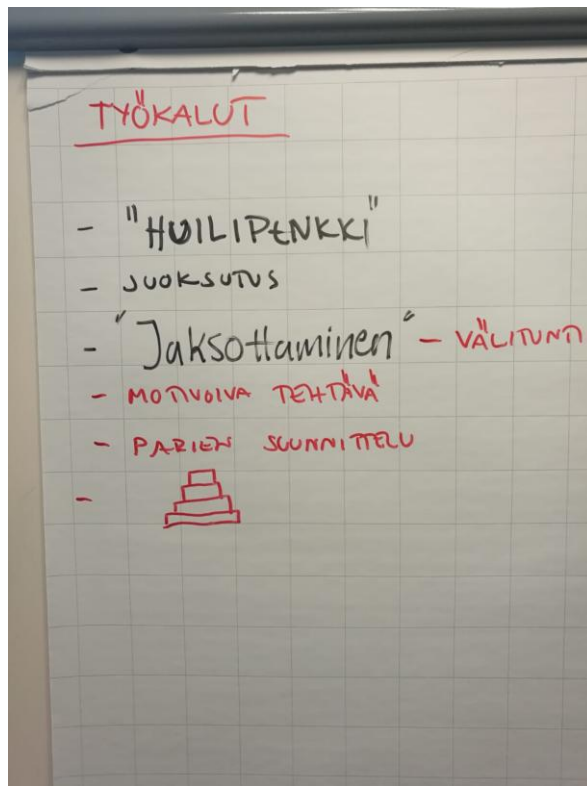 TYÖKALUT
- "HUILIPENKKI"
- JUOKSUTUS
- "Jaksottaminen" - VÄLITUNTI
- MOTIVOIVA TEHTÄVÄ
- PARIEN SUUNNITTELU
-